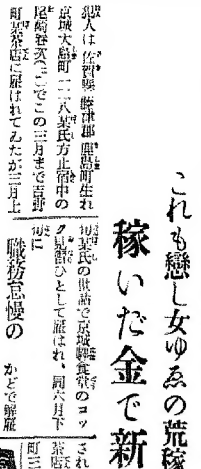 これも戀し女ゆゑの荒稼
稼いだ金で新
犯人は佐賀縣藤津郡鹿島町生れ
京城大島町一二八某氏方止宿中の
尾崎春次(二〇)でこの三月まで吉野
町某茶店に雇はれてゐたが三月上
旬某氏の世話で京城驛食堂のコッ
ク見習ひとして雇はれ、同六月下
旬に
職務怠慢の かどで解雇
され
茶店
町三